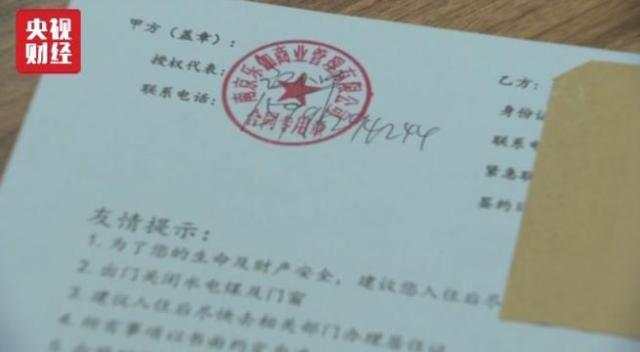 央视
财经
甲方（盖章）：
授权代表：
联系电话：
南京乐伽商业管理有限公司
合同专用章
乙方：
身份证
联系电
紧急联
签约日
友情提示：
1. 为了您的生命及财产安全，建议您入住后尽
2. 出门关闭水电煤及门窗
3. 建议入住后尽快去相关部门办理居住证
4. 所有事项以书面约定为